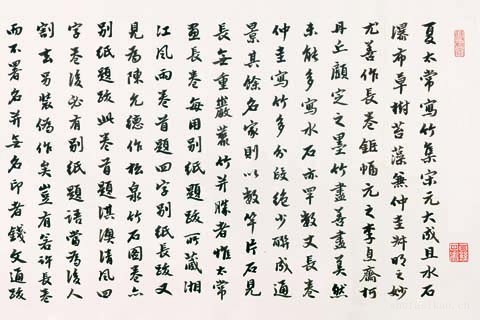 夏太常寫竹集宋元大成且水石
瀑布草樹苔藻兼仲圭叔明之妙
尤善作長卷鉅幅元之李息齋柯
丹丘顧定之墨竹盡善盡美然
未能多寫水石亦罕數丈長卷
仲圭寫竹多分段絕少聯成通
景其餘名家則以數竿片石見
長無重巖叢竹并勝者惟太常
畫長卷每用別紙題跋所藏湘
江風雨卷首題四字別紙長跋又
見為陳允德作松泉竹石圖卷亦
別紙題跋此卷首題淇澳清風四
字卷後必有別紙題識當為後人
割去另裝偽作矣豈有若許長卷
而不署名并無名印者錢文通跋